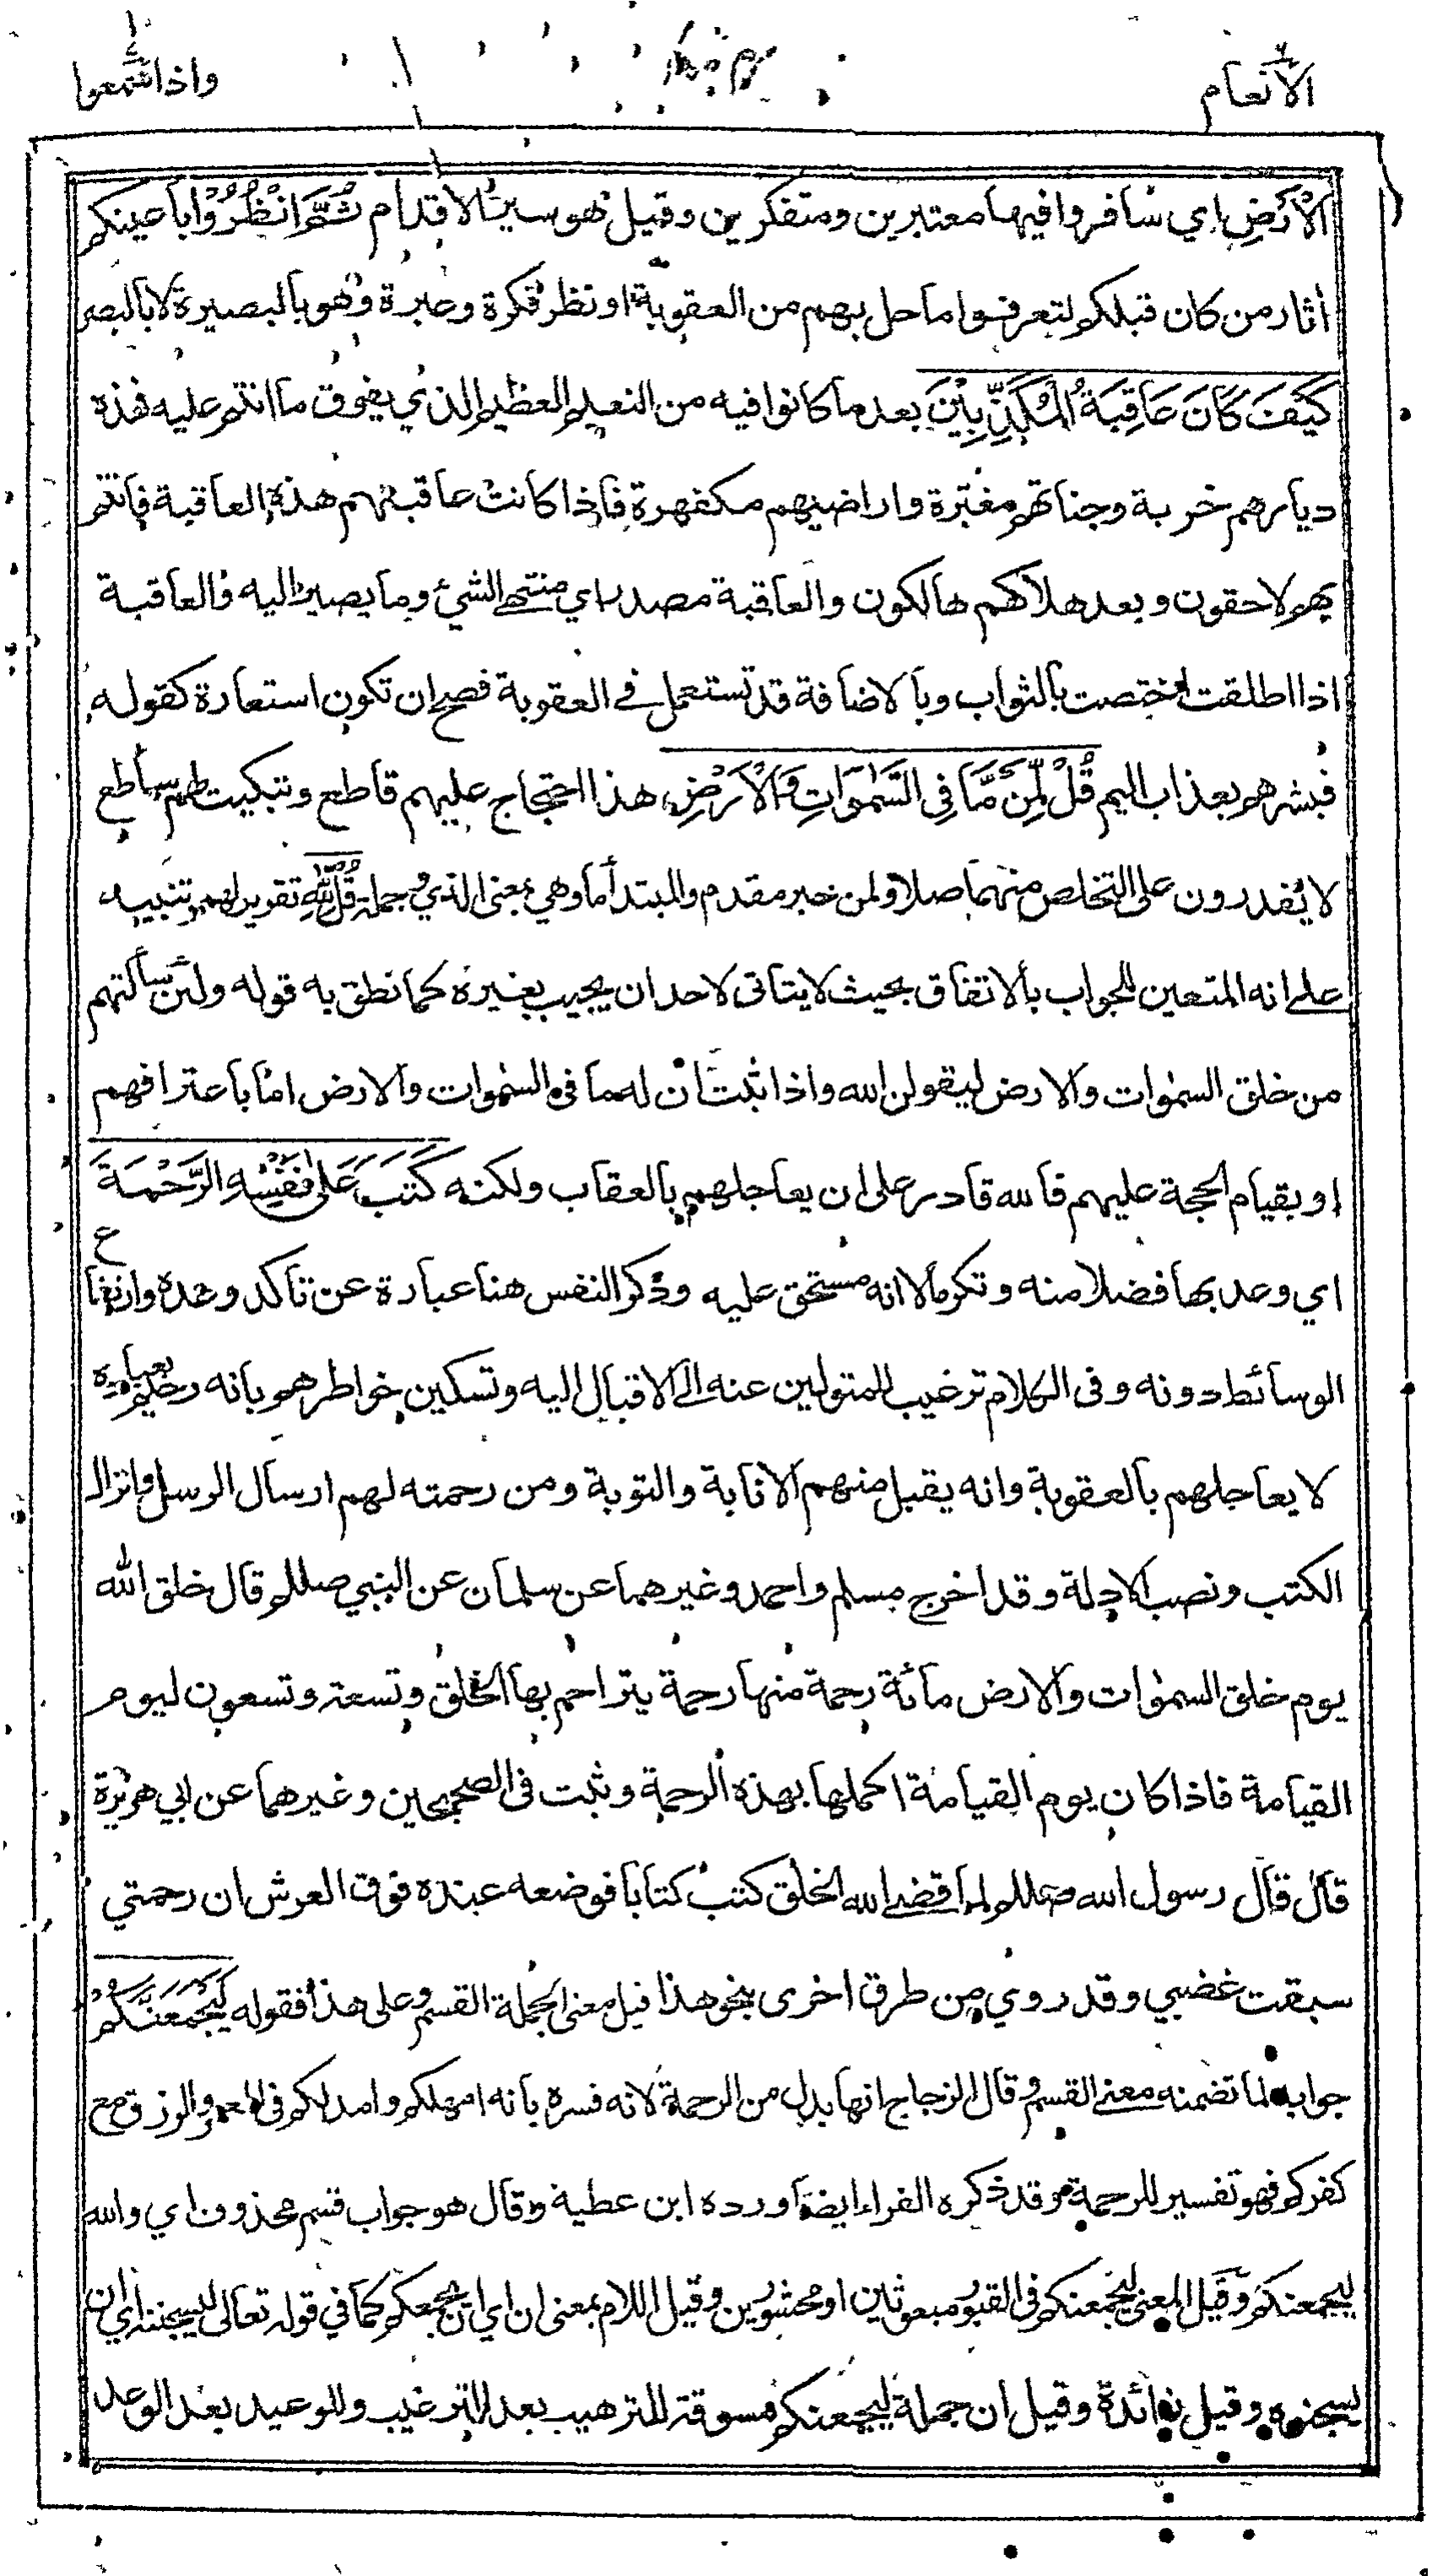 الانعام
واذا سمعوا
الْاَرْضِ اي سافروا فيها معتبرين ومتفكرين وقيل هو سير الاقدام ثُمَّ انْظُرُوْا باعينكم
اثار من كان قبلكم لتعرفوا ما حل بهم من العقوبة او نظر فكرة وعبرة وهو بالبصيرة لا بالبصر
كَيْفَ كَانَ عَاقِبَةُ الْمُكَذِّبِيْنَ بعد ما كانوا فيه من النعيم العظيم الذي يفوق ما انتم عليه فهذه
ديارهم خربة وجناتهم مغبرة واراضيهم مكفهرة فاذا كانت عاقبتهم هذه العاقبة فانتم
بهم لاحقون وبعد هلاكهم هالكون والعاقبة مصدر اي منتهى الشئ وما يصير اليه والعاقبة
اذا اطلقت اختصت بالثواب وبالاضافة قد تستعمل في العقوبة فصح ان تكون استعارة كقوله
فبشرهم بعذاب اليم قُلْ لِّمَنْ مَّا فِى السَّمٰوَاتِ وَالْاَرْضِ هذا احتجاج عليهم قاطع وتبكيت لهم ساطع
لا يقدرون على التخلص منهما صلا ولمن خبر مقدم والمبتدأ ما وهي بمعنى الذي وجملة قُلْ لِلّٰهِ تقرير لهم وتنبيه
على انه المتعين للجواب بالاتفاق بحيث لا يتاتى لاحد ان يجيب بغيره كما نطق به قوله ولئن سألتهم
من خلق السمٰوات والارض ليقولن الله واذا ثبت ان له ما في السمٰوات والارض اما باعترافهم
او بقيام الحجة عليهم فالله قادر على ان يعاجلهم بالعقاب ولكنه كَتَبَ عَلٰى نَفْسِهِ الرَّحْمَةَ
ع
اي وعد بها فضلا منه وتكرما لا انه مستحق عليه وذكر النفس هنا عبارة عن تاكد وعده وارتفاع
الوسائط دونه وفى الكلام ترغيب للمتولين عنه الى الاقبال اليه وتسكين خواطرهم بانه رحيم بعباده
لا يعاجلهم بالعقوبة وانه يقبل منهم الانابة والتوبة ومن رحمته لهم ارسال الرسل وانزال
الكتب ونصب الادلة وقد اخرج مسلم واحمد وغيرهما عن سلمان عن النبي صللم قال خلق الله
يوم خلق السمٰوات والارض مائة رحمة منها رحمة يتراحم بها الخلق وتسعة وتسعون ليوم
القيامة فاذا كان يوم القيامة اكملها بهذه الرحمة وثبت فى الصحيحين وغيرهما عن ابي هريرة
قال قال رسول الله صللم لما قضى الله الخلق كتب كتابا فوضعه عنده فوق العرش ان رحمتي
سبقت غضبي وقد روي من طرق اخرى بنحو هذا قيل معنى الجملة القسم وعلى هذا فقوله لَيَجْمَعَنَّكُمْ
جوابه لما تضمنه معنى القسم وقال الزجاج انها بدل من الرحمة لانه فسره بانه امهلكم وامد لكم فى العمر والرزق مع
كفركم فهو تفسير للرحمة وقد ذكره الفراء ايضا ورده ابن عطية وقال هو جواب قسم محذوف اي والله
ليجمعنكم وقيل المعنى ليجمعنكم فى القبور مبعوثين او محشورين وقيل اللام بمعنى ان اي ان يجمعكم كما في قوله تعالى ليسجننه اي ان
يسجنوه وقيل زائدة وقيل ان جملة ليجمعنكم مسوقة للترهيب بعد الترغيب وللوعيد بعد الوعد